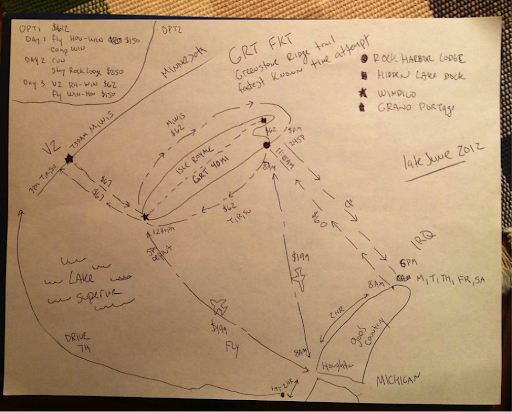 OPT1 $612
DAY 1 Fly HOU-WIN $150
camp WIN
DAY 2 RUN
Stay Rock Lodge $250
DAY 3 V2 RH-WIN $62
Fly WIN-HOU $150
OPT2
MINNESOTA
GRT FKT
Greenstone Ridge trail
fastest known time attempt
ROCK HARBOR LODGE
HIDDEN LAKE DOCK
WINDIGO
GRAND PORTAGE
late June 2012
V2
$67
$67
MWIS
$62
ISLE ROYALE
GRT 40MI
$62
8AM
$62
5PM
245P
$60
IRQ
6PM
8AM M, T, TH, FR, SA
$199
$199
FLY
LAKE
SUPERIOR
DRIVE
7H
2HR
8AM
Houghton
good Country
MICHIGAN